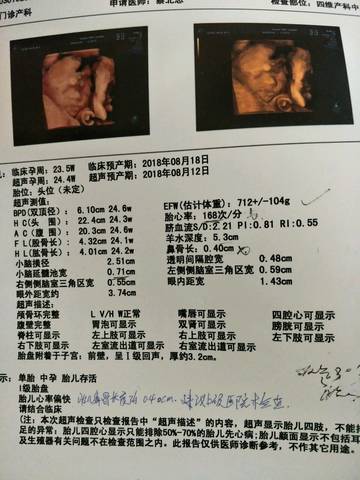 门诊产科
申请医师：蔡北思
检查部位：四维产科中
临床孕周：23.5W 临床预产期：2018年08月18日
超声孕周：24.4W 超声预产期：2018年08月12日
胎位：头位（未定）
超声测值：
BPD(双顶径)： 6.10cm 24.6w EFW(估计体重)：712+/-104g
H C(头 围)： 22.4cm 24.3w 胎心率：168次/分
A C(腹 围)： 20.3cm 24.6w 脐血流S/D:2.21 PI:0.81 RI:0.55
F L(股骨长)： 4.32cm 24.1w 羊水深度：5.3cm
H L(肱骨长)： 4.01cm 24.2w 鼻骨长： 0.40cm
小脑横径 2.51cm 透明间隔腔宽 0.48cm
小脑延髓池宽 0.71cm 左侧侧脑室三角区宽 0.59cm
右侧侧脑室三角区宽 0.55cm 眼内距宽 1.43cm
眼外距约宽 3.74cm
超声描述：
颅骨环完整 L V/H W正常 嘴唇可显示 四腔心可显示
腹壁完整 胃泡可显示 双肾可显示 膀胱可显示
脊柱可显示 左上肢可显示 右上肢可显示 左下肢可显示
右下肢可显示 左室流出道可显示 右室流出道可显示
胎盘附着于子宫：前壁，呈Ⅰ级回声，厚约3.2cm。
示：单胎 中孕 胎儿存活
Ⅰ级胎盘
胎儿心率偏快 胎儿鼻骨长度约0.40cm. 建议上级医院检查
请结合临床
（注：本次超声检查只检查报告中“超声描述”的内容，超声显示胎儿四肢，不能
足的异常；胎儿四腔心显示只能排除50%-70%的胎儿先心病；胎儿颜面显示不包括耳
及生殖器有关问题不在检查范围之内。此报告仅供医师诊断参考，不作其它用途。